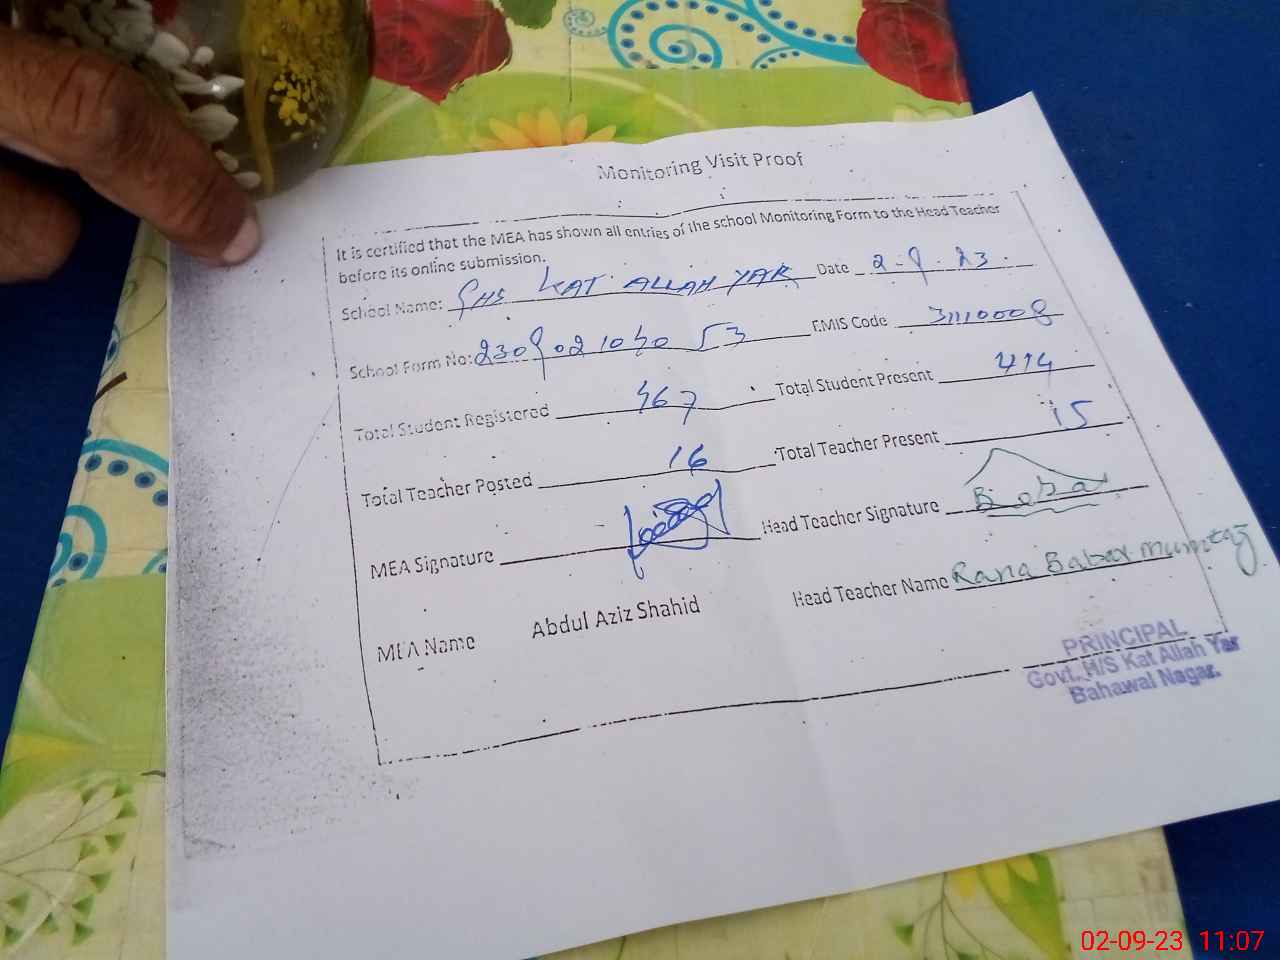 Monitoring Visit Proof
It is certified that the MEA has shown all entries of the school Monitoring Form to the Head Teacher
before its online submission.
School Name: GHS KAT ALLAH YAR Date 2-9-23
School Form No: 230902104053 EMIS Code 31110008
Total Student Registered 467 Total Student Present 414
Total Teacher Posted 16 Total Teacher Present 15
MEA Signature Head Teacher Signature Babar
MEA Name Abdul Aziz Shahid Head Teacher Name Rana Babar mumtaz
PRINCIPAL
Govt. H/S Kat Allah Yar
Bahawal Nagar.
02-09-23 11:07